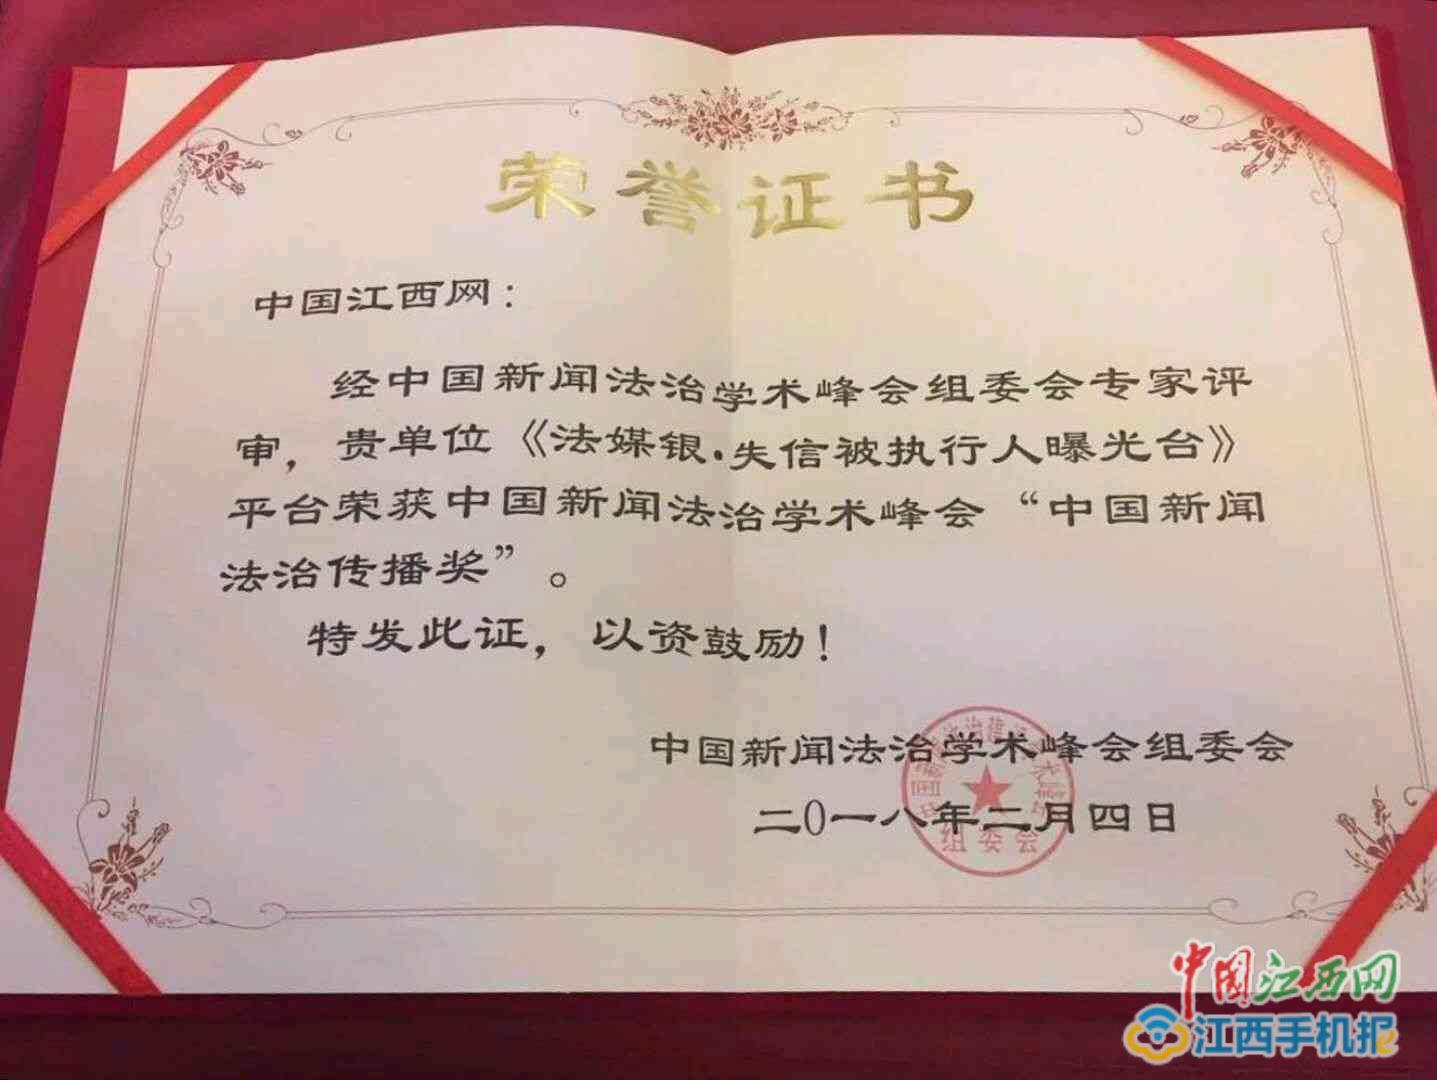 荣誉证书
中国江西网：
经中国新闻法治学术峰会组委会专家评
审，贵单位《法媒银·失信被执行人曝光台》
平台荣获中国新闻法治学术峰会“中国新闻
法治传播奖”。
特发此证，以资鼓励！
中国新闻法治学术峰会组委会
二〇一八年二月四日
组委会
中国江西网
江西手机报